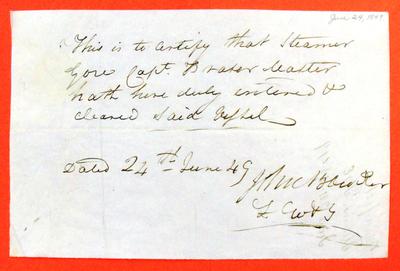 June 24, 1849
This is to certify that Steamer
Gore Capt. Master
hath here duly entered &
cleared Said Vessel
Dated 24th June 49
John